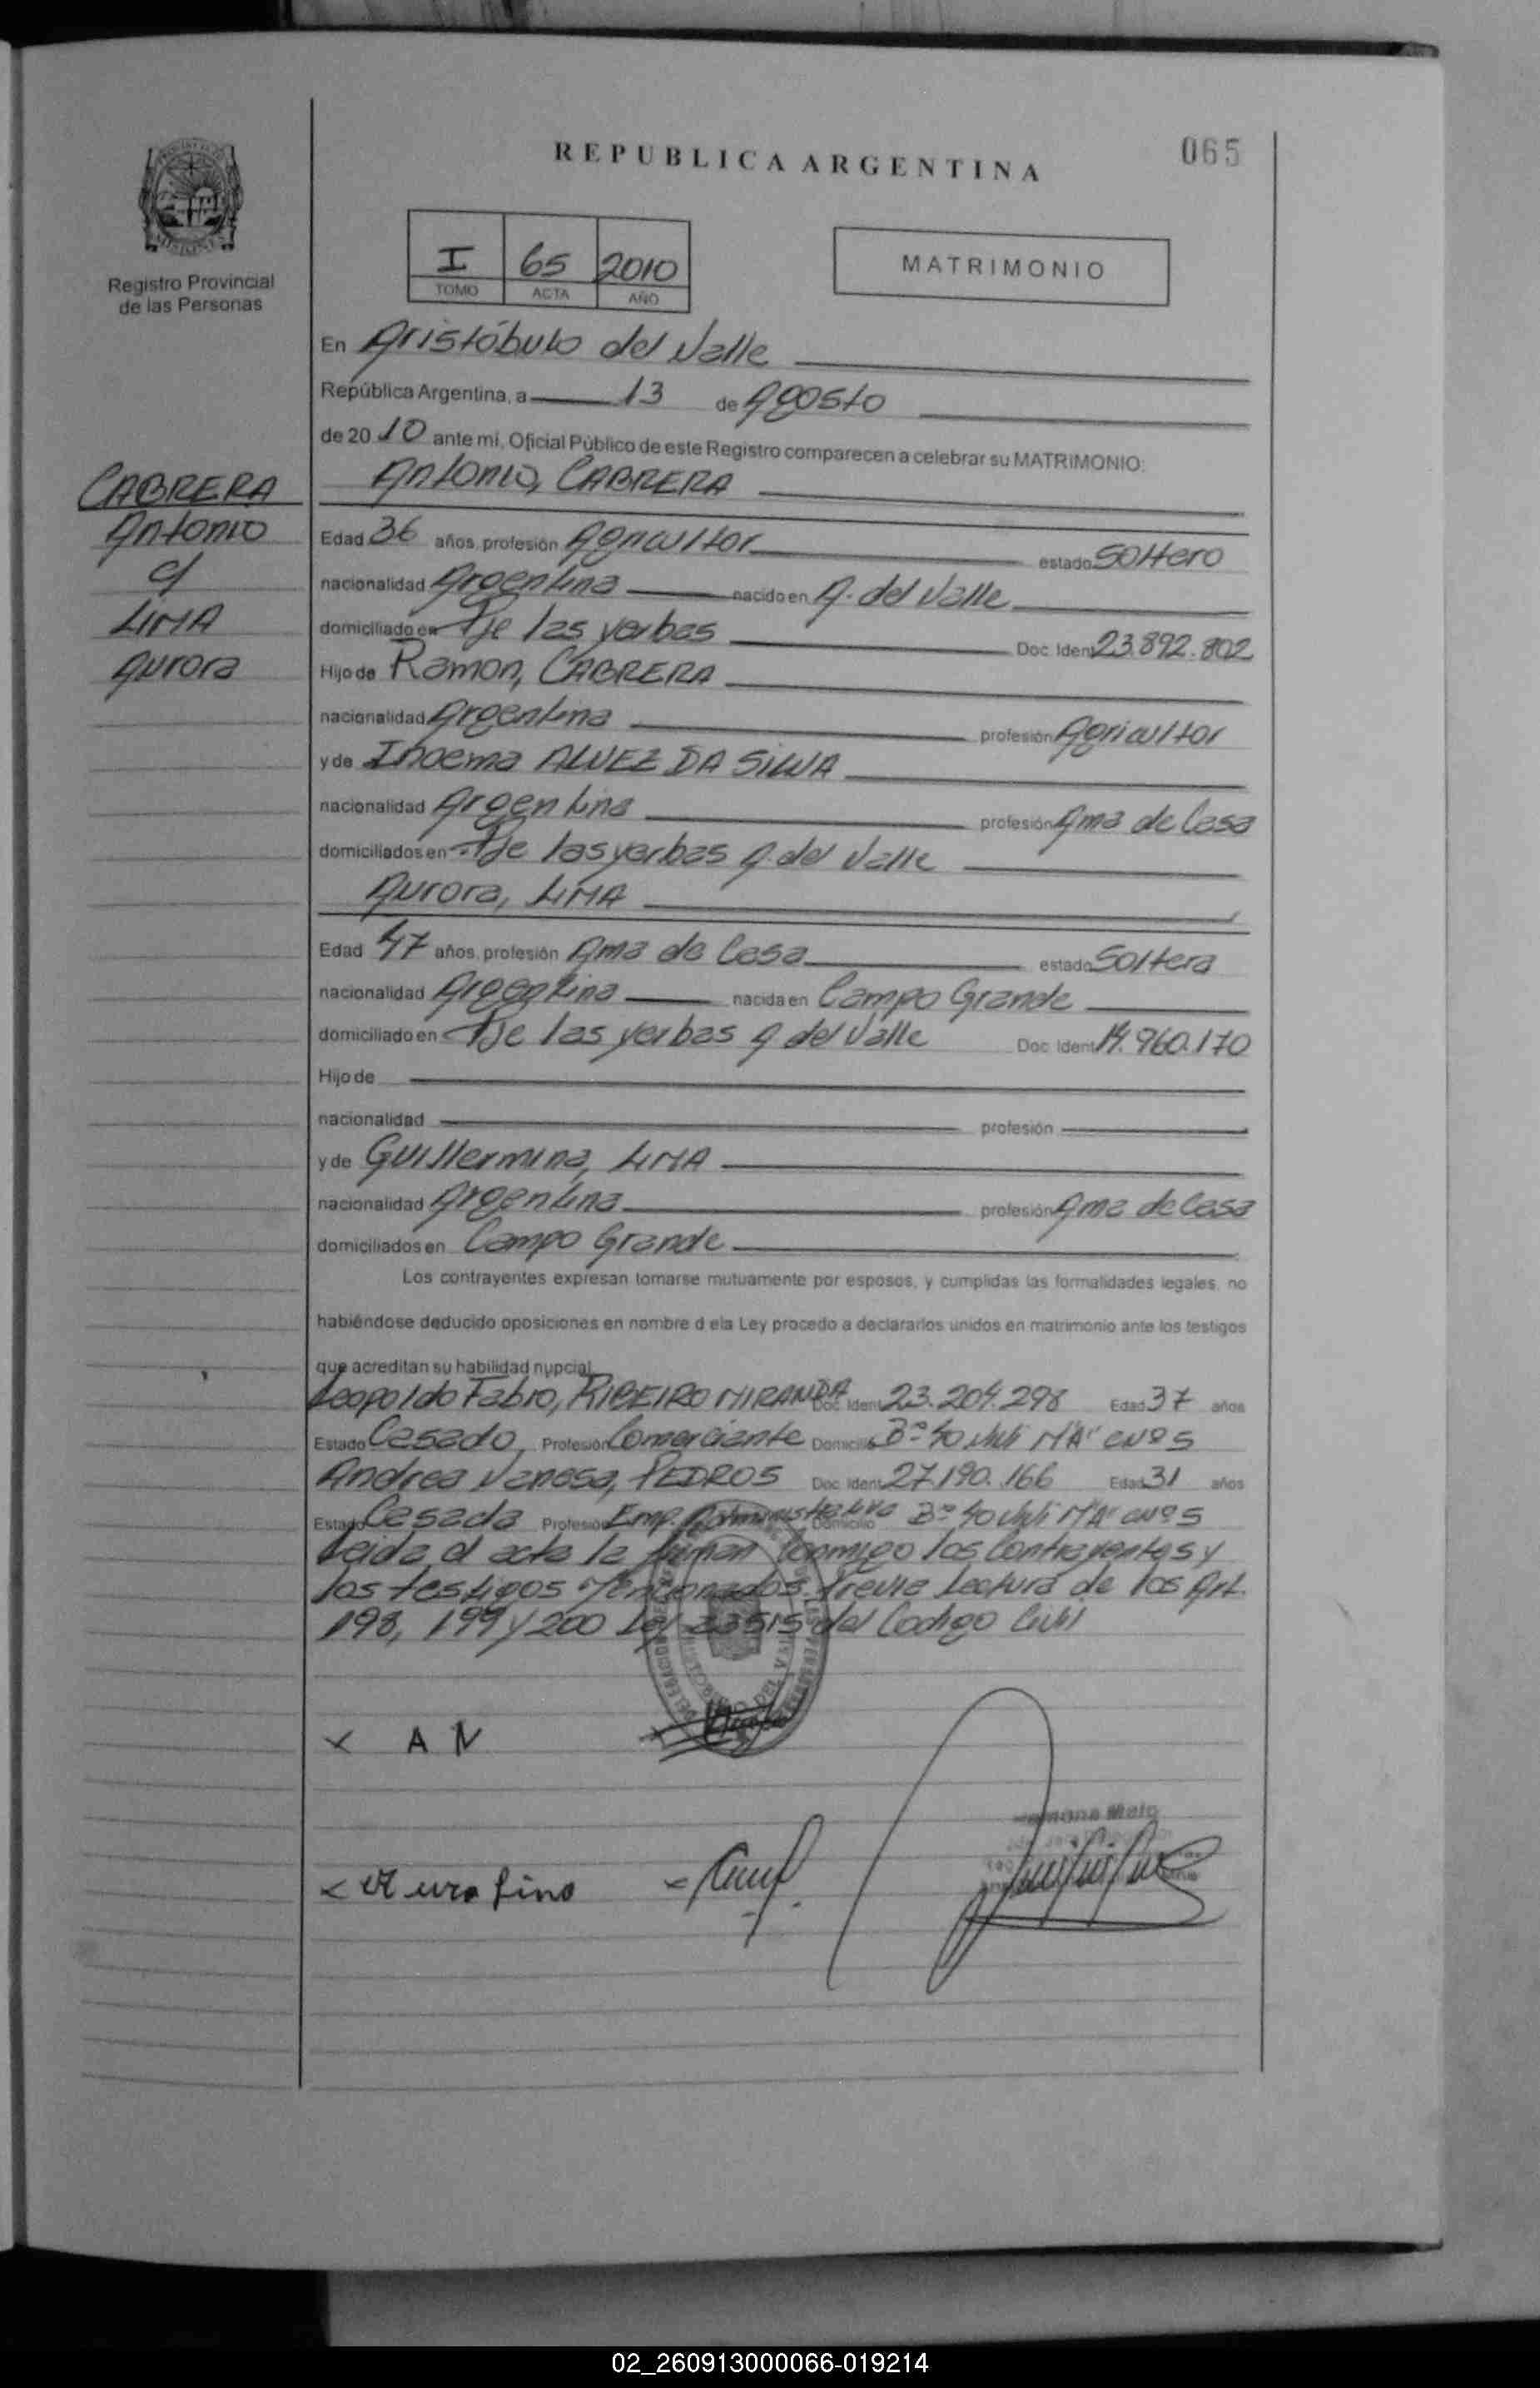 REPUBLICA ARGENTINA
065
Registro Provincial
de las Personas
I 65 2010
TOMO ACTA AÑO
MATRIMONIO
En Aristóbulo del Valle
República Argentina, a 13 de Agosto
de 2010 ante mi, Oficial Público de este Registro comparecen a celebrar su MATRIMONIO:
CABRERA
Antonio
c/
LIMA
Aurora
Antonio, CABRERA
Edad 36 años, profesión Agricultor estado Soltero
nacionalidad Argentina nacido en A. del Valle
domiciliado en Pje las yerbas Doc. Ident 23.892.802
Hijo de Ramon, CABRERA
nacionalidad Argentina profesión Agricultor
y de ALVEZ DA SILVA
nacionalidad Argentina profesión Ama de Casa
domiciliados en Pje las yerbas A. del Valle
Aurora, LIMA
Edad 47 años, profesión Ama de Casa estado Soltera
nacionalidad Argentina nacida en Campo Grande
domiciliado en Pje las yerbas A del Valle Doc. Ident 14.960.170
Hijo de
nacionalidad profesión
y de Guillermina, LIMA
nacionalidad Argentina profesión Ama de Casa
domiciliados en Campo Grande
Los contrayentes expresan tomarse mutuamente por esposos, y cumplidas las formalidades legales, no
habiéndose deducido oposiciones en nombre d ela Ley procedo a declararlos unidos en matrimonio ante los testigos
que acreditan su habilidad nupcial
Leopoldo Fabio, RIBEIRO MIRANDA Doc. Ident 23.204.298 Edad 37 años
Estado Casado, Profesión Comerciante Domicilio Bº 40 Viv MzA" cNº5
Andrea Vanesa, PEDROS Doc. Ident 27.190.166 Edad 31 años
Estado Casada Profesión Emp. Administrativa Domicilio Bº 40 Viv MzA" cNº5
Leida el acta la firman conmigo los Contrayentes y
los testigos Mencionados. Previa Lectura de los Art.
198, 199 y 200 Ley 23515 del Codigo Civil
x A N
x Aurora Lima
02_260913000066-019214